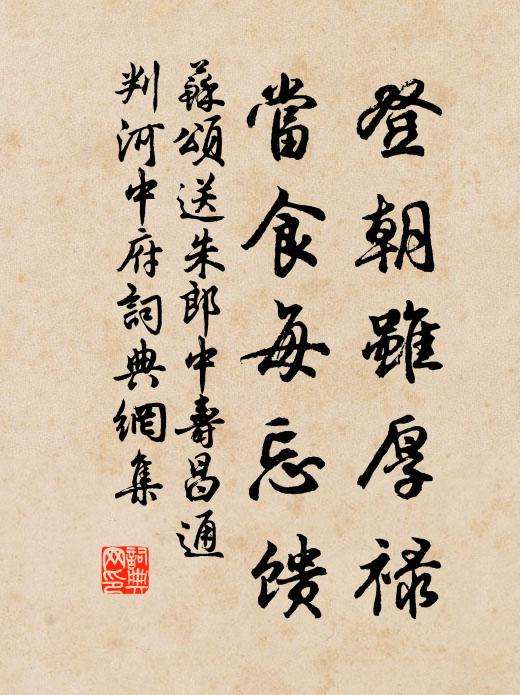 登朝雖厚禄
當食每忘馈
蘇頌送朱郎中壽昌通
判河中府詞典網集
詞典网印